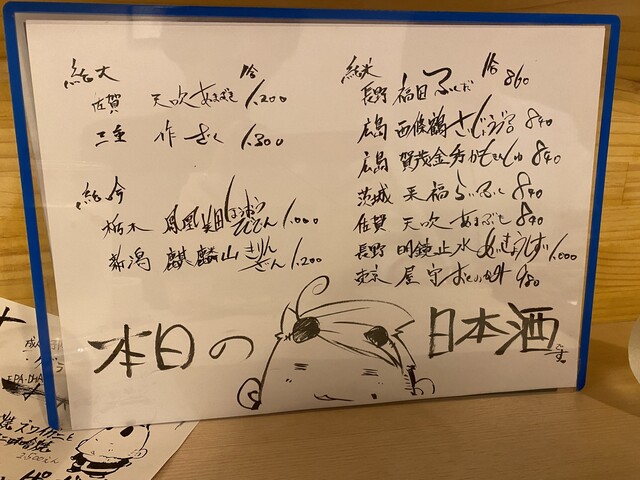 純大 1合
佐賀 天吹 あまぶき 1.200
三重 作 ざく 1.300
純吟
栃木 鳳凰美田 ほうおうびでん 1.000
新潟 麒麟山 きりんざん 1.200
純米 1合
長野 福田 ふくだ 860
広島 西條鶴 さいじょうづる 840
広島 賀茂金秀 かもきんしゅう 840
茨城 来福 らいふく 840
佐賀 天吹 あまぶき 840
長野 明鏡止水 めいきょうしすい 1.000
東京 屋守 おくのかみ 980
本日の 日本酒 です
EPA・DHA
焼 ズワイガニと